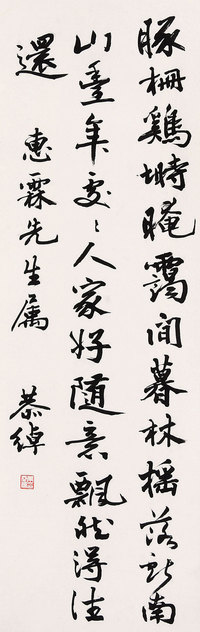 豚柵鷄塒晻靄間暮林搖落献南
山豐年處々人家好隨意飄然得往
還 惠霖先生属 恭綽